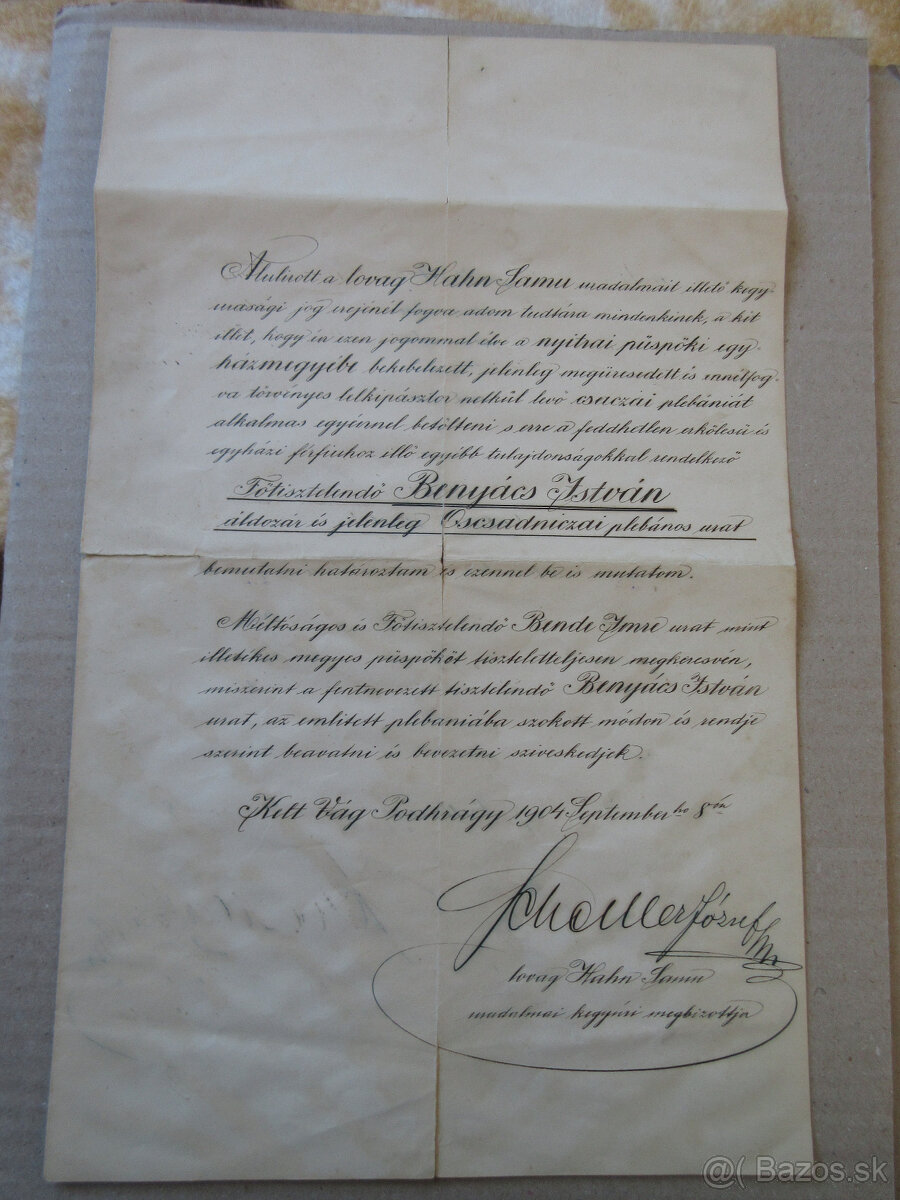 Alulirott a lovag Hahn Samu uradalmait illető kegy-
urasági jog erejénél fogva adom tudtára mindenkinek, a kit
illet, hogy én ezen jogommal élve a nyitrai püspöki egy-
házmegyébe bekebelezett, jelenleg megüresedett és ennélfog-
va törvényes lelkipásztor nélkül levő csaczai plebániát
alkalmas egyénnel betölteni s erre a feddhetlen erkölcsü és
egyházi férfiuhoz illő egyébb tulajdonságokkal rendelkező
Főtisztelendő Benyács István
áldozár és jelenleg Ocscsadniczai plebános urat
bemutatni határoztam és ezennel be is mutatom.
Méltóságos és Főtisztelendő Bende Imre urat mint
illetékes megyés püspököt tiszteletteljesen megkeresvén,
miszerint a fentnevezett tisztelendő Benyács István
urat, az emlitett plebániába szokott módon és rendje
szerint beavatni és bevezetni sziveskedjék.
Kelt Vág Podhrágy 1904 September hó 8 án
Schaller József
lovag Hahn Samu
uradalmai kegyúri megbizottja
@( Bazos.sk